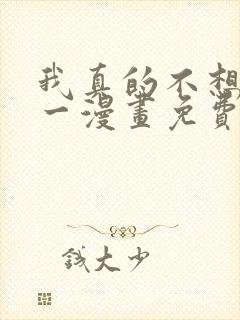 我真的不想
一漫畫免費
錢大少